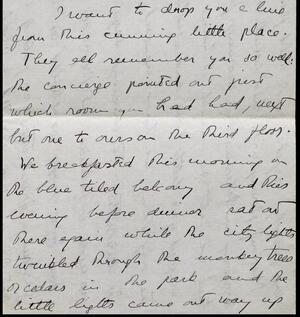 I want to drop you a line
from this cunning little place.
They all remember you so well.
The concierge pointed out just
which room you had had, next
but one to ours on the third floor.
We breakfasted this morning on
the blue tiled balcony and this
evening before dinner sat out
there again while the city lights
twinkled through the monkey trees
or cedars in the park and the
little lights came out way up